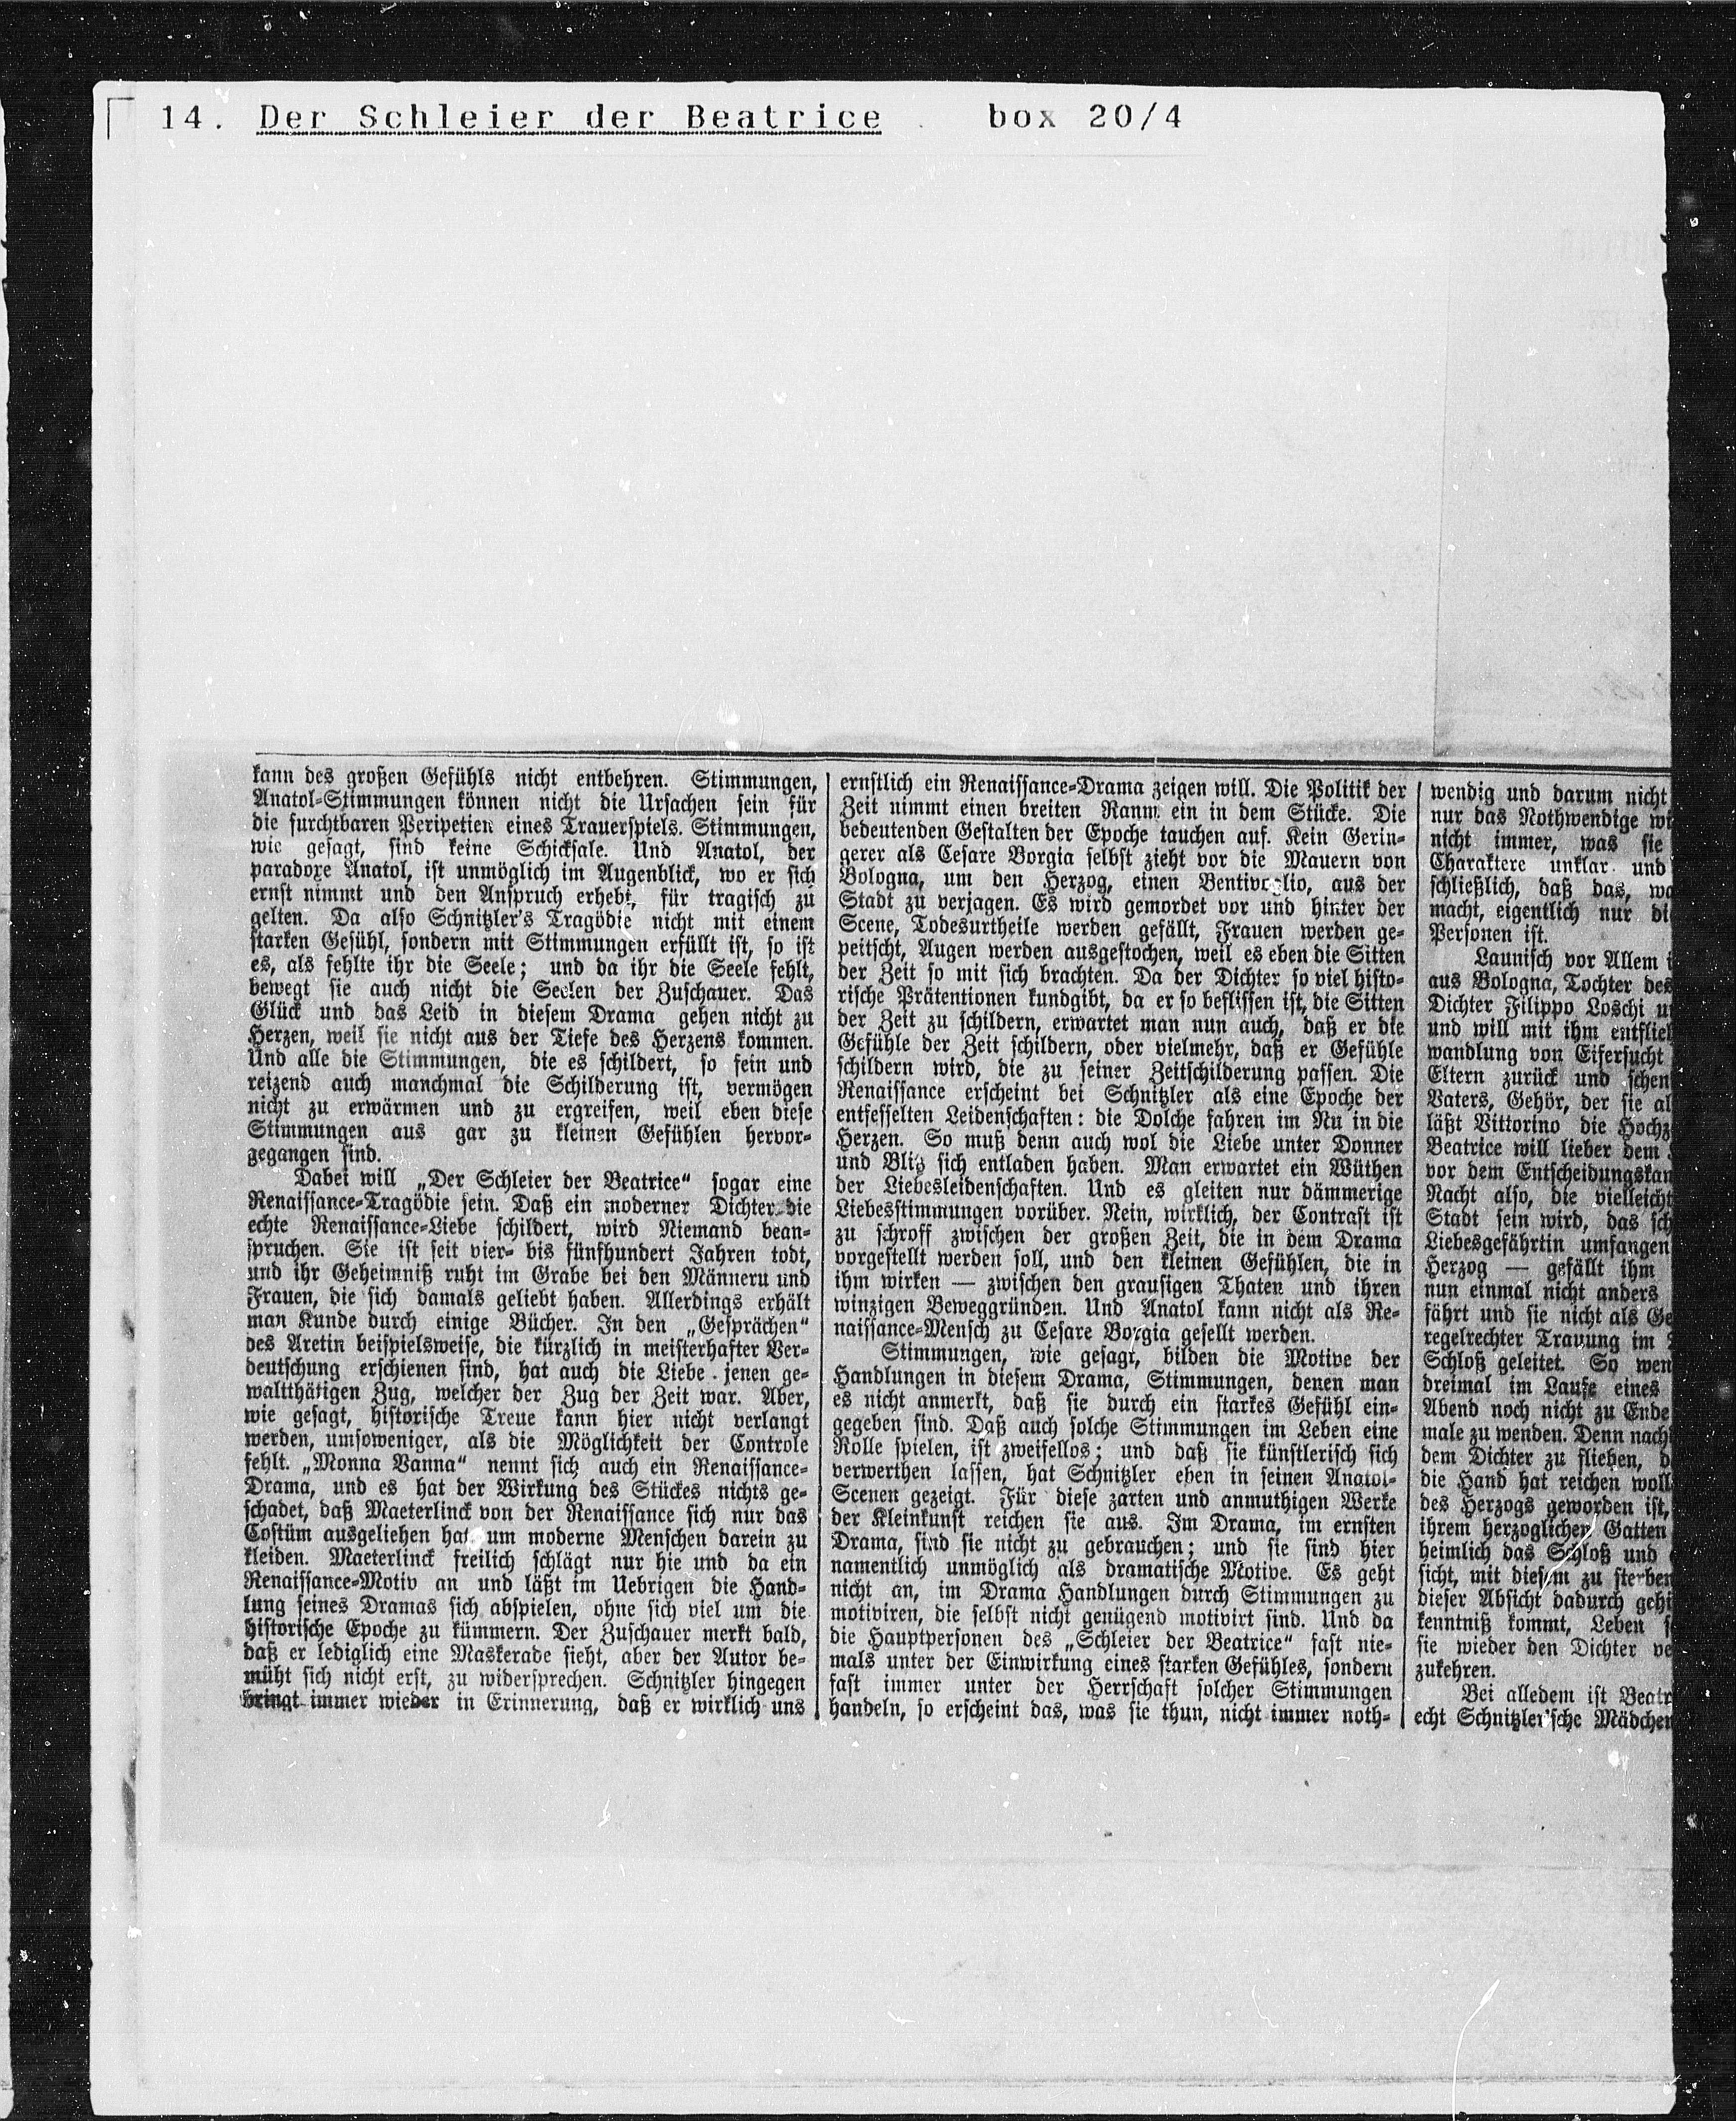 14. Der Schleier der Beatrice box 20/4
kann des großen Gefühls nicht entbehren. Stimmungen,
Anatol-Stimmungen können nicht die Ursachen sein für
die furchtbaren Peripetien eines Trauerspiels. Stimmungen,
wie gesagt, sind keine Schicksale. Und Anatol, der
paradoxe Anatol, ist unmöglich im Augenblick, wo er sich
ernst nimmt und den Anspruch erhebt, für tragisch zu
gelten. Da also Schnitzler's Tragödie nicht mit einem
starken Gefühl, sondern mit Stimmungen erfüllt ist, so ist
es, als fehlte ihr die Seele; und da ihr die Seele fehlt,
bewegt sie auch nicht die Seelen der Zuschauer. Das
Glück und das Leid in diesem Drama gehen nicht zu
Herzen, weil sie nicht aus der Tiefe des Herzens kommen.
Und alle die Stimmungen, die es schildert, so fein und
reizend auch manchmal die Schilderung ist, vermögen
nicht zu erwärmen und zu ergreifen, weil eben diese
Stimmungen aus gar zu kleinen Gefühlen hervor-
gegangen sind.
Dabei will „Der Schleier der Beatrice“ sogar eine
Renaissance-Tragödie sein. Daß ein moderner Dichter die
echte Renaissance-Liebe schildert, wird Niemand bean-
spruchen. Sie ist seit vier- bis fünfhundert Jahren todt,
und ihr Geheimniß ruht im Grabe bei den Männern und
Frauen, die sich damals geliebt haben. Allerdings erhält
man Kunde durch einige Bücher. In den „Gesprächen“
des Aretin beispielsweise, die kürzlich in meisterhafter Ver-
deutschung erschienen sind, hat auch die Liebe jenen ge-
waltthätigen Zug, welcher der Zug der Zeit war. Aber,
wie gesagt, historische Treue kann hier nicht verlangt
werden, umsoweniger, als die Möglichkeit der Controle
fehlt. „Monna Vanna“ nennt sich auch ein Renaissance-
Drama, und es hat der Wirkung des Stückes nichts ge-
schadet, daß Maeterlinck von der Renaissance sich nur das
Costüm ausgeliehen hat um moderne Menschen darein zu
kleiden. Maeterlinck freilich schlägt nur hie und da ein
Renaissance-Motiv an und läßt im Uebrigen die Hand-
lung seines Dramas sich abspielen, ohne sich viel um die
historische Epoche zu kümmern. Der Zuschauer merkt bald,
daß er lediglich eine Maskerade sieht, aber der Autor be-
müht sich nicht erst, zu widersprechen. Schnitzler hingegen
bringt immer wieder in Erinnerung, daß er wirklich uns
ernstlich ein Renaissance-Drama zeigen will. Die Politik der
Zeit nimmt einen breiten Raum ein in dem Stücke. Die
bedeutenden Gestalten der Epoche tauchen auf. Kein Gerin-
gerer als Cesare Borgia selbst zieht vor die Mauern von
Bologna, um den Herzog, einen Bentivoglio, aus der
Stadt zu verjagen. Es wird gemordet vor und hinter der
Scene, Todesurtheile werden gefällt, Frauen werden ge-
peitscht, Augen werden ausgestochen, weil es eben die Sitten
der Zeit so mit sich brachten. Da der Dichter so viel histo-
rische Prätentionen kundgibt, da er so beflissen ist, die Sitten
der Zeit zu schildern, erwartet man nun auch, daß er die
Gefühle der Zeit schildern, oder vielmehr, daß er Gefühle
schildern wird, die zu seiner Zeitschilderung passen. Die
Renaissance erscheint bei Schnitzler als eine Epoche der
entfesselten Leidenschaften: die Dolche fahren im Nu in die
Herzen. So muß denn auch wol die Liebe unter Donner
und Blitz sich entladen haben. Man erwartet ein Wüthen
der Liebesleidenschaften. Und es gleiten nur dämmerige
Liebesstimmungen vorüber. Nein, wirklich, der Contrast ist
zu schroff zwischen der großen Zeit, die in dem Drama
vorgestellt werden soll, und den kleinen Gefühlen, die in
ihm wirken — zwischen den grausigen Thaten und ihren
winzigen Beweggründen. Und Anatol kann nicht als Re-
naissance-Mensch zu Cesare Borgia gesellt werden.
Stimmungen, wie gesagt, bilden die Motive der
Handlungen in diesem Drama, Stimmungen, denen man
es nicht anmerkt, daß sie durch ein starkes Gefühl ein-
gegeben sind. Daß auch solche Stimmungen im Leben eine
Rolle spielen, ist zweifellos; und daß sie künstlerisch sich
verwerthen lassen, hat Schnitzler eben in seinen Anatol-
Scenen gezeigt. Für diese zarten und anmuthigen Werke
der Kleinkunst reichen sie aus. Im Drama, im ernsten
Drama, sind sie nicht zu gebrauchen; und sie sind hier
namentlich unmöglich als dramatische Motive. Es geht
nicht an, im Drama Handlungen durch Stimmungen zu
motiviren, die selbst nicht genügend motivirt sind. Und da
die Hauptpersonen des „Schleier der Beatrice“ fast nie-
mals unter der Einwirkung eines starken Gefühles, sondern
fast immer unter der Herrschaft solcher Stimmungen
handeln, so erscheint das, was sie thun, nicht immer noth-
wendig und darum nicht
nur das Nothwendige
nicht immer, was sie
Charaktere unklar und
schließlich, daß das,
macht, eigentlich nur
Personen ist.
Launisch vor Allem
aus Bologna, Tochter des
Dichter Filippo Loschi
und will mit ihm
wandlung von Eifersucht
Eltern zurück und
Vaters, Gehör, der sie
läßt Vittorino die
Beatrice will lieber dem
vor dem
Nacht also, die vielleicht
Stadt sein wird, das
Liebesgefährtin umfangen
Herzog — gefällt ihm
nun einmal nicht anders
fährt und sie nicht als
regelrechter Trauung im
Schloß geleitet. So
dreimal im Laufe eines
Abend noch nicht zu Ende
male zu wenden. Denn
dem Dichter zu fliehen,
die Hand hat reichen
des Herzogs geworden ist,
ihrem herzoglichen Gatten
heimlich das Schloß und
sicht, mit diesem zu
dieser Absicht dadurch
kenntniß kommt, Leben
sie wieder den Dichter
zukehren.
Bei alledem ist
echt Schnitzler'sche